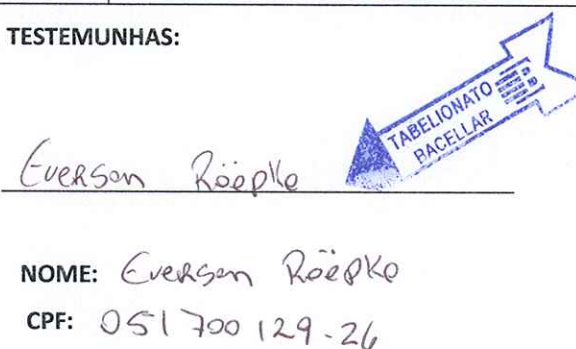 TESTEMUNHAS:
TABELIONATO
BACELLAR
Everson Röepke
NOME: Everson Röepke
CPF: 051700129-26